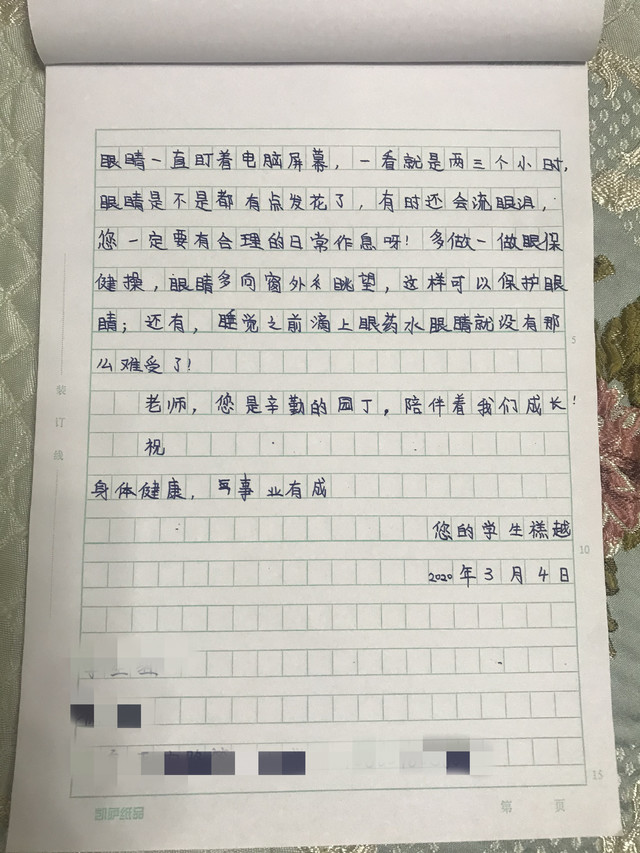 眼睛一直盯着电脑屏幕，一看就是两三个小时，
眼睛是不是都有点发花了，有时还会流眼泪，
您一定要有合理的日常作息呀！多做一做眼保
健操，眼睛多向窗外乡眺望，这样可以保护眼
睛；还有，睡觉之前滴上眼药水眼睛就没有那
5
么难受了！
装订线
老师，您是辛勤的园丁。陪伴着我们成长！
祝
身体健康，事业有成
您的学生
越
10
2020年3月4日
15
第 页